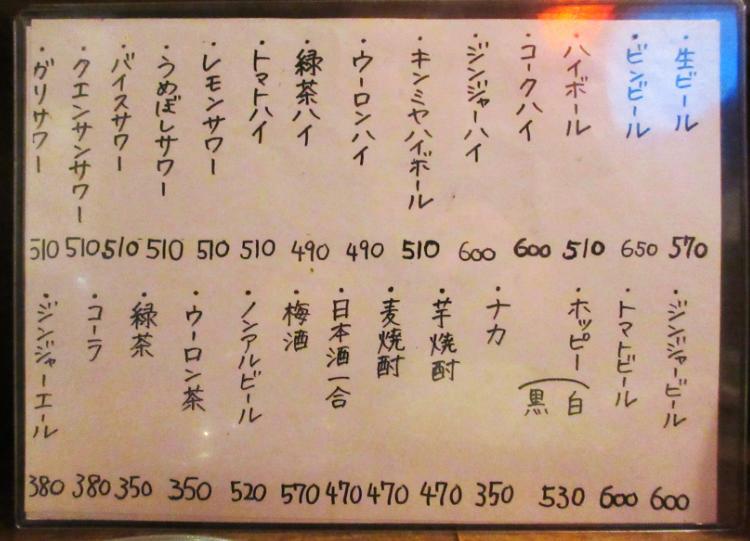 ・生ビール 570
・ビンビール 650
・ハイボール 510
・コークハイ 600
・ジンジャーハイ 600
・キンミヤハイボール 510
・ウーロンハイ 490
・緑茶ハイ 490
・トマトハイ 510
・レモンサワー 510
・うめぼしサワー 510
・バイスサワー 510
・クエンサンサワー 510
・ガリサワー 510
・ジンジャービール 600
・トマトビール 600
・ホッピー(白 黒 530
・ナカ 350
・芋焼酎 470
・麦焼酎 470
・日本酒一合 470
・梅酒 570
・ノンアルビール 520
・ウーロン茶 350
・緑茶 350
・コーラ 380
・ジンジャーエール 380